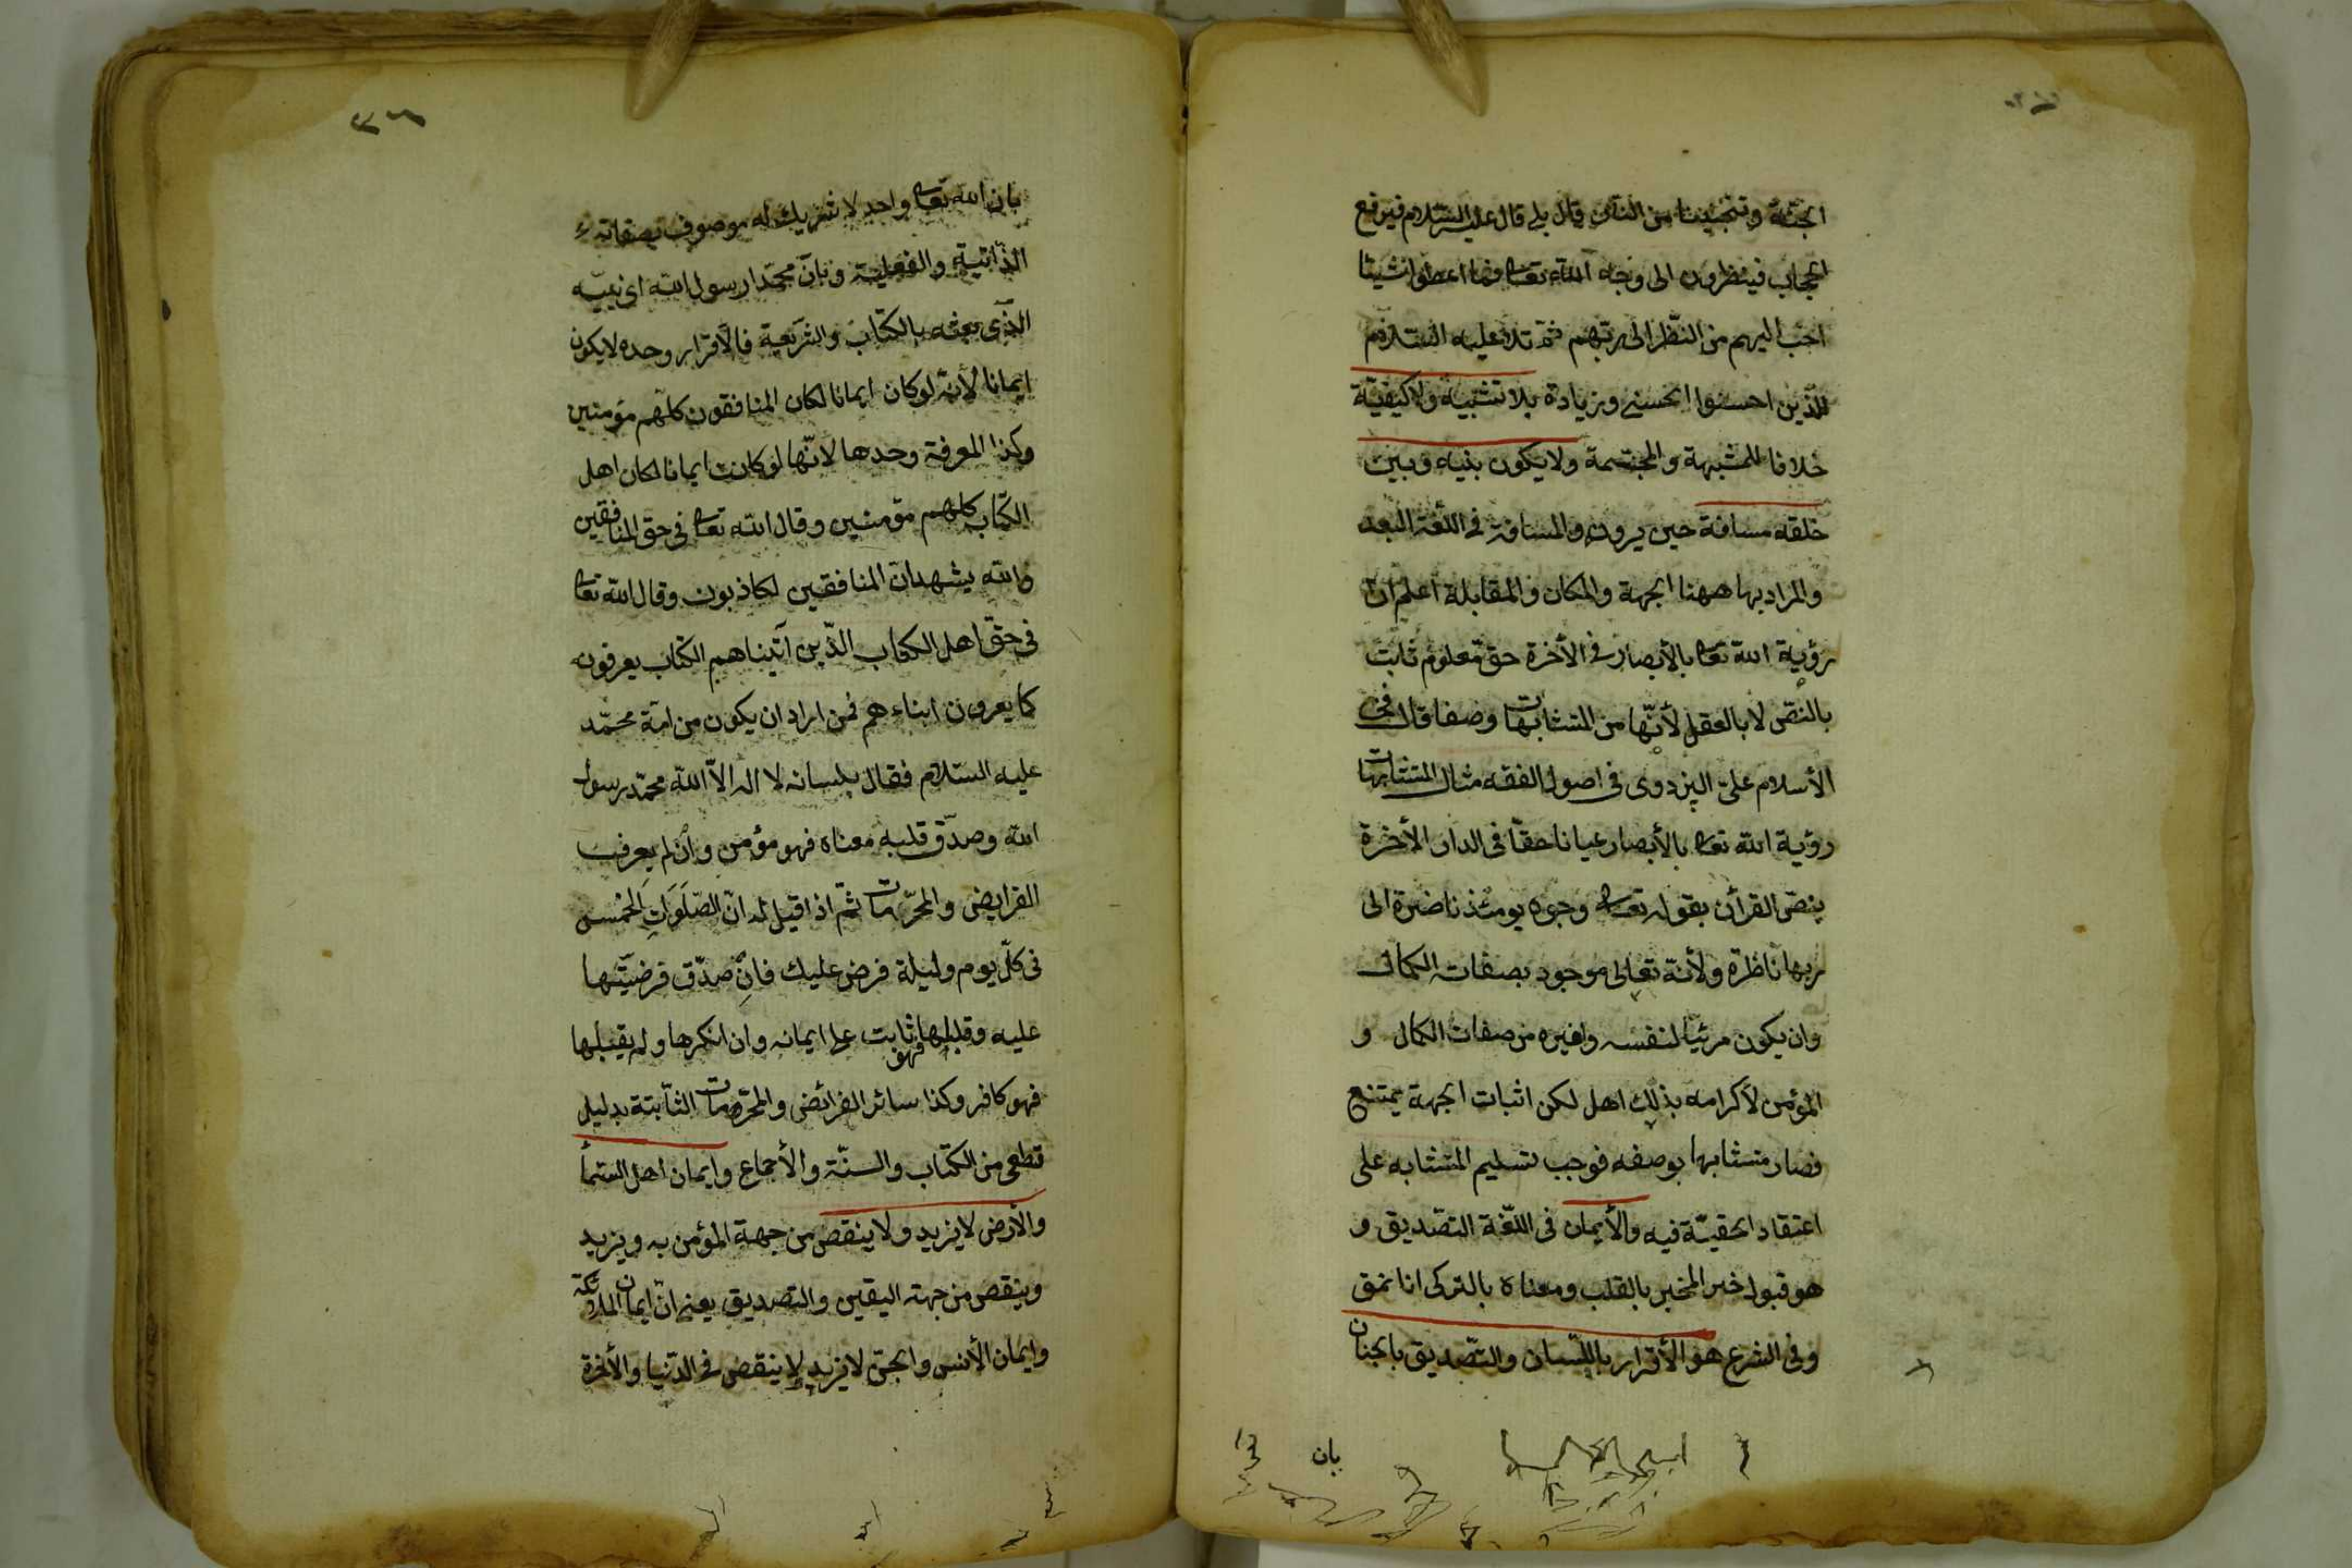 الجنّة وتنجّينا من النار قال بلى قال عليه السّلام فيرفع
الحجاب فينظرون الى وجه الله تعا فما اعطوا شيئا
احبّ اليهم من النّظر الى ربّهم ثمّ تلا عليه السّلام
للّذين احسنوا الحسنى وزيادة بلا تشبيه ولا كيفيّة
خلافا للمشبهة والمجسّمة ولا يكون بينه وبين
خلقه مسافة حين يرونه والمسافة فى اللّغة البعد
والمراد بها ههنا الجهة والمكان والمقابلة اعلم ان
رؤية الله تعا بالأبصار فى الأخرة حق معلوم ثابت
بالنصّ لا بالعقل لأنّها من المتشابهات وصفا قال فخر
الأسلام علىّ البزدوى فى اصول الفقه مثال المتشابهات
رؤية الله تعا بالأبصار عيانا حقّا فى الدار الأخرة
بنصّ القرأن بقوله تعا وجوه يومئذ ناضرة الى
ربها ناظرة ولأنّه تعالى موجود بصفات الكمال
وان يكون مرئيّا لنفسه ولغيره من صفات الكمال و
المؤمن لأكرامه بذلك اهل لكن اثبات الجهة يمتنع
فصار متشابها بوصفه فوجب تسليم المتشابه على
اعتقاد الحقيّة فيه والأيمان فى اللّغة التصّديق و
هو قبول خبر المخبر بالقلب ومعناه بالتركى انانمق
وفى الشرع هو الأقرار باللّسان والتّصديق بالجنان
بان
بان الله تعا واحد لا شريك له موصوف بصفاته
الذّاتية والفعليّة وبانّ محمّدا رسول الله اى نبيّه
الّذى بعثه بالكتاب والشّريعة فالأقرار وحده لا يكون
ايمانا لأنّه لو كان ايمانا لكان المنافقون كلّهم مؤمنين
وكذا المعرفة وحدها لانّها لو كانت ايمانا لكان اهل
الكتاب كلهم مؤمنين وقال الله تعا فى حق المنافقين
والله يشهد ان المنافقين لكاذبون وقال الله تعا
فى حقّ اهل الكتاب الّذين آتيناهم الكتاب يعرفونه
كما يعرفون ابناءهم فمن اراد ان يكون من امّة محمّد
عليه السّلام فقال بلسانه لا اله الاّ الله محمّد رسول
الله وصدّق قلبه معناه فهو مؤمن وان لم يعرف
الفرايض والمحرّمات ثمّ اذا قيل له انّ الصّلوات الخمس
فى كلّ يوم وليلة فرض عليك فان صدّق فرضيّتها
عليه وقبلها فهو ثابت على ايمانه وان انكرها ولم يقبلها
فهو كافر وكذا سائر الفرائض والمحرّمات الثّابتة بدليل
قطعى من الكتاب والسنّة والأجماع وايمان اهل السّماء
والأرض لا يزيد ولا ينقص من جهة المؤمن به ويزيد
وينقص من جهة اليقين والتصديق يعنى انّ ايمان الملائكة
وايمان الأنس والجنّ لا يزيد لا ينقص فى الدّنيا والأخرة